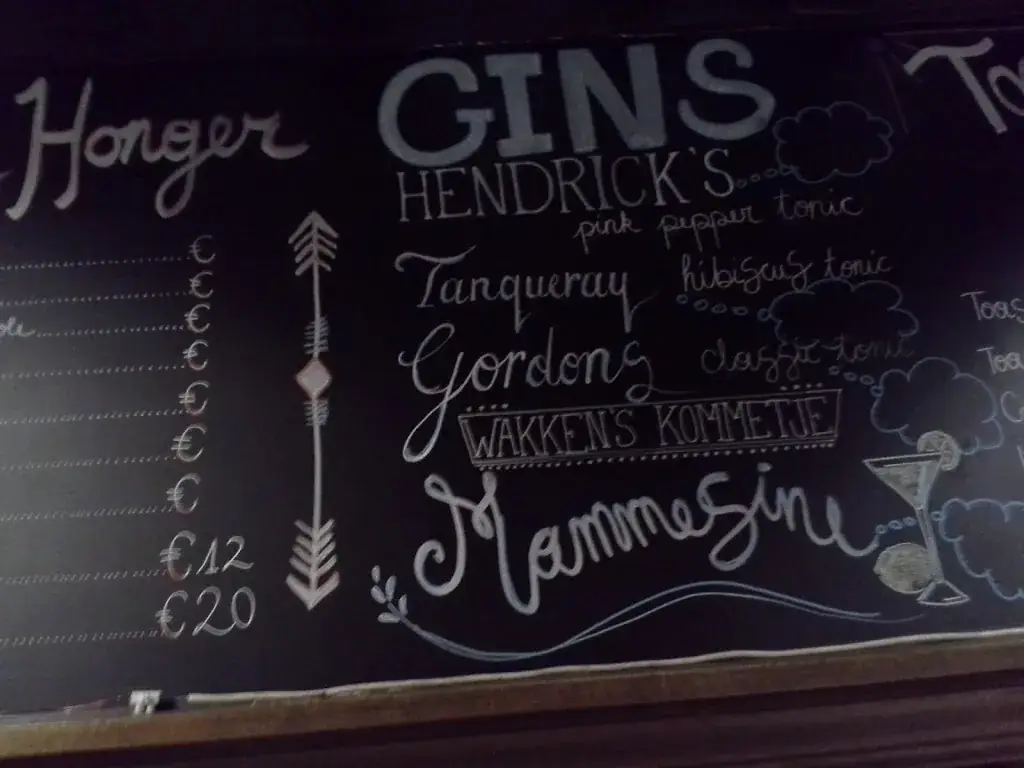 Honger
€
€
€
€
€
€
€
€12
€20
GINS
HENDRICK'S
pink pepper tonic
Tanqueray hibiscus tonic
Gordons classic tonic
WAKKEN'S KOMMETJE
Mammezine
To
Toas